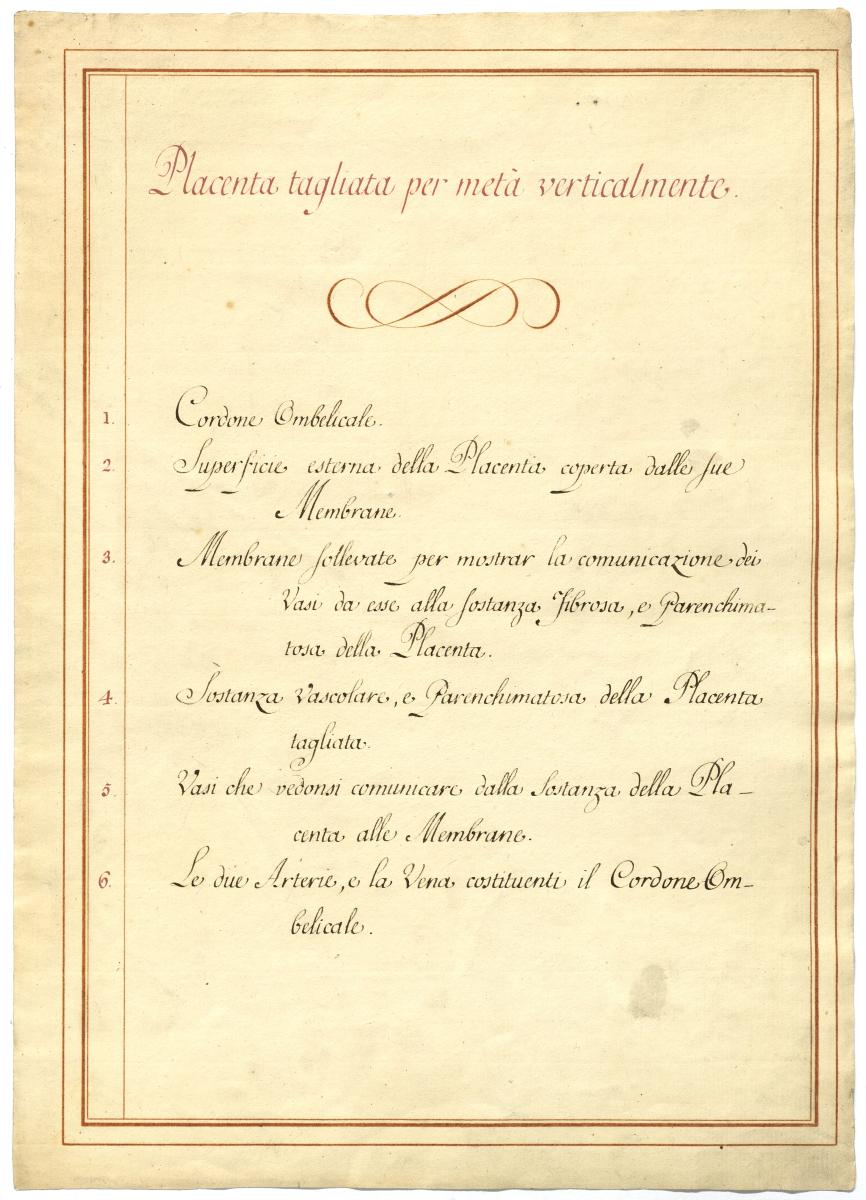 Placenta tagliata per metà verticalmente.
1. Cordone Ombelicale.
2. Superficie esterna della Placenta coperta dalle sue
Membrane.
3. Membrane sollevate per mostrar la comunicazione dei
Vasi da esse alla sostanza Fibrosa, e Parenchima-
tosa della Placenta.
4. Sostanza Vascolare, e Parenchimatosa della Placenta
tagliata.
5. Vasi che vedonsi comunicare dalla Sostanza della Pla-
centa alle Membrane.
6. Le due Arterie, e la Vena costituenti il Cordone Om-
belicale.